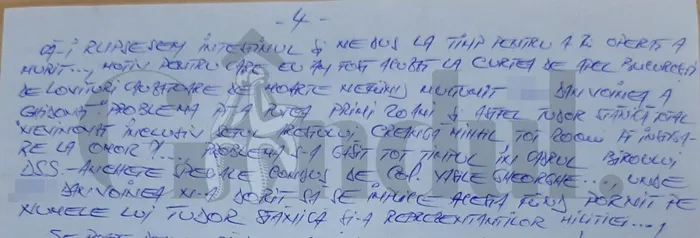 - 4 -
CĂ-I RUPSESEM INTESTINUL ȘI NEDUS LA TIMP PENTRU A FI OPERAT A
MURIT..., MOTIV PENTRU CARE EU AM FOST ACUZAT LA CURTEA DE APEL BUCUREȘTI
DE LOVITURI CAUZATOARE DE MOARTE NEFIIND MULȚUMIT DAN VOINEA A
GÂNDIT PROBLEMA PT A PUTEA PRIMI 20 ANI ȘI ASTFEL TUDOR STĂNICĂ TOTAL
NEVINOVAT INCLUSIV ȘEFUL ARESTULUI CREANGĂ MIHAIL TOT 20 ANI
RE LA OMOR?!... PROBLEMA S-A GĂSIT TOT TIMPUL ÎN CADRUL BIROULUI
DSS-ANCHETE SPECIALE CONDUS DE COL. VASILE GHEORGHE..., UNDE
DAN VOINEA N-A DORIT SĂ SE IMPLICE ACESTA FIIND PORNIT PE
NUMELE LUI TUDOR STĂNICĂ ȘI-A REPREZENTANȚILOR MILIȚIEI...,
SE POATE
Gândul.